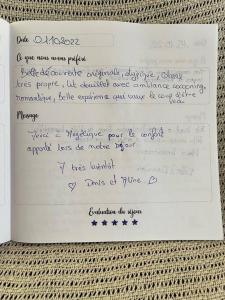 Date 01.10.2022
Ce que nous avons préféré
Belle découverte originale, atypique,
très propre, lit douillet avec ambiance cocooning,
romantique, Belle expérience qui vaut le coup d'être
Message
Merci à Angélique pour le confort
apporté lors de notre séjour
A très bientôt
♡ Denis et Aline ♡
Évaluation du séjour
★ ★ ★ ★ ★